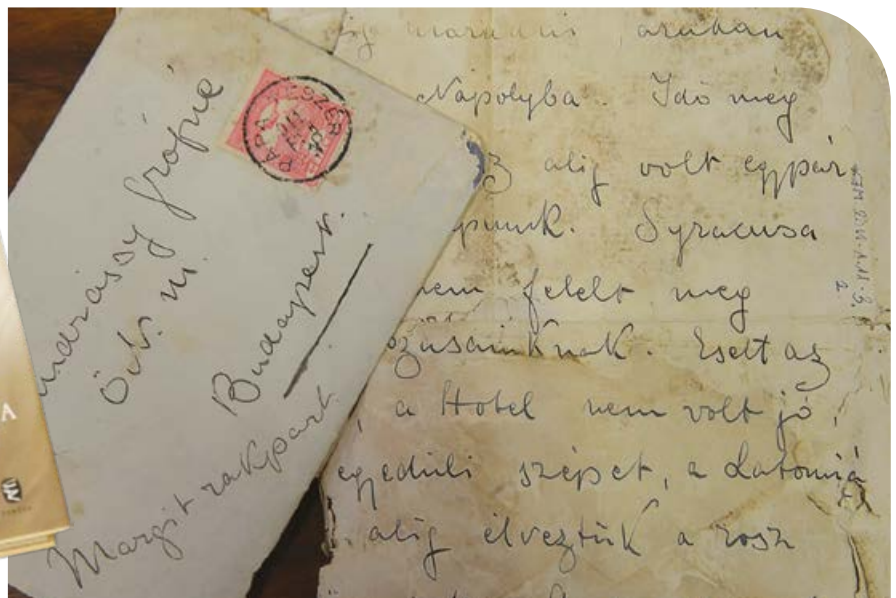 ndrássy Grófné
Öv. m.
Budapest.
Margit rakpart
PÁPA
A
marad
Nápolyba. Idő még
z alig volt egypár
punk. Syracusa
nem felelt meg
ozásainknak. Esett az
, a Hotel nem volt jó,
egyedüli szépet, a Latomiá
alig élveztük a rosz